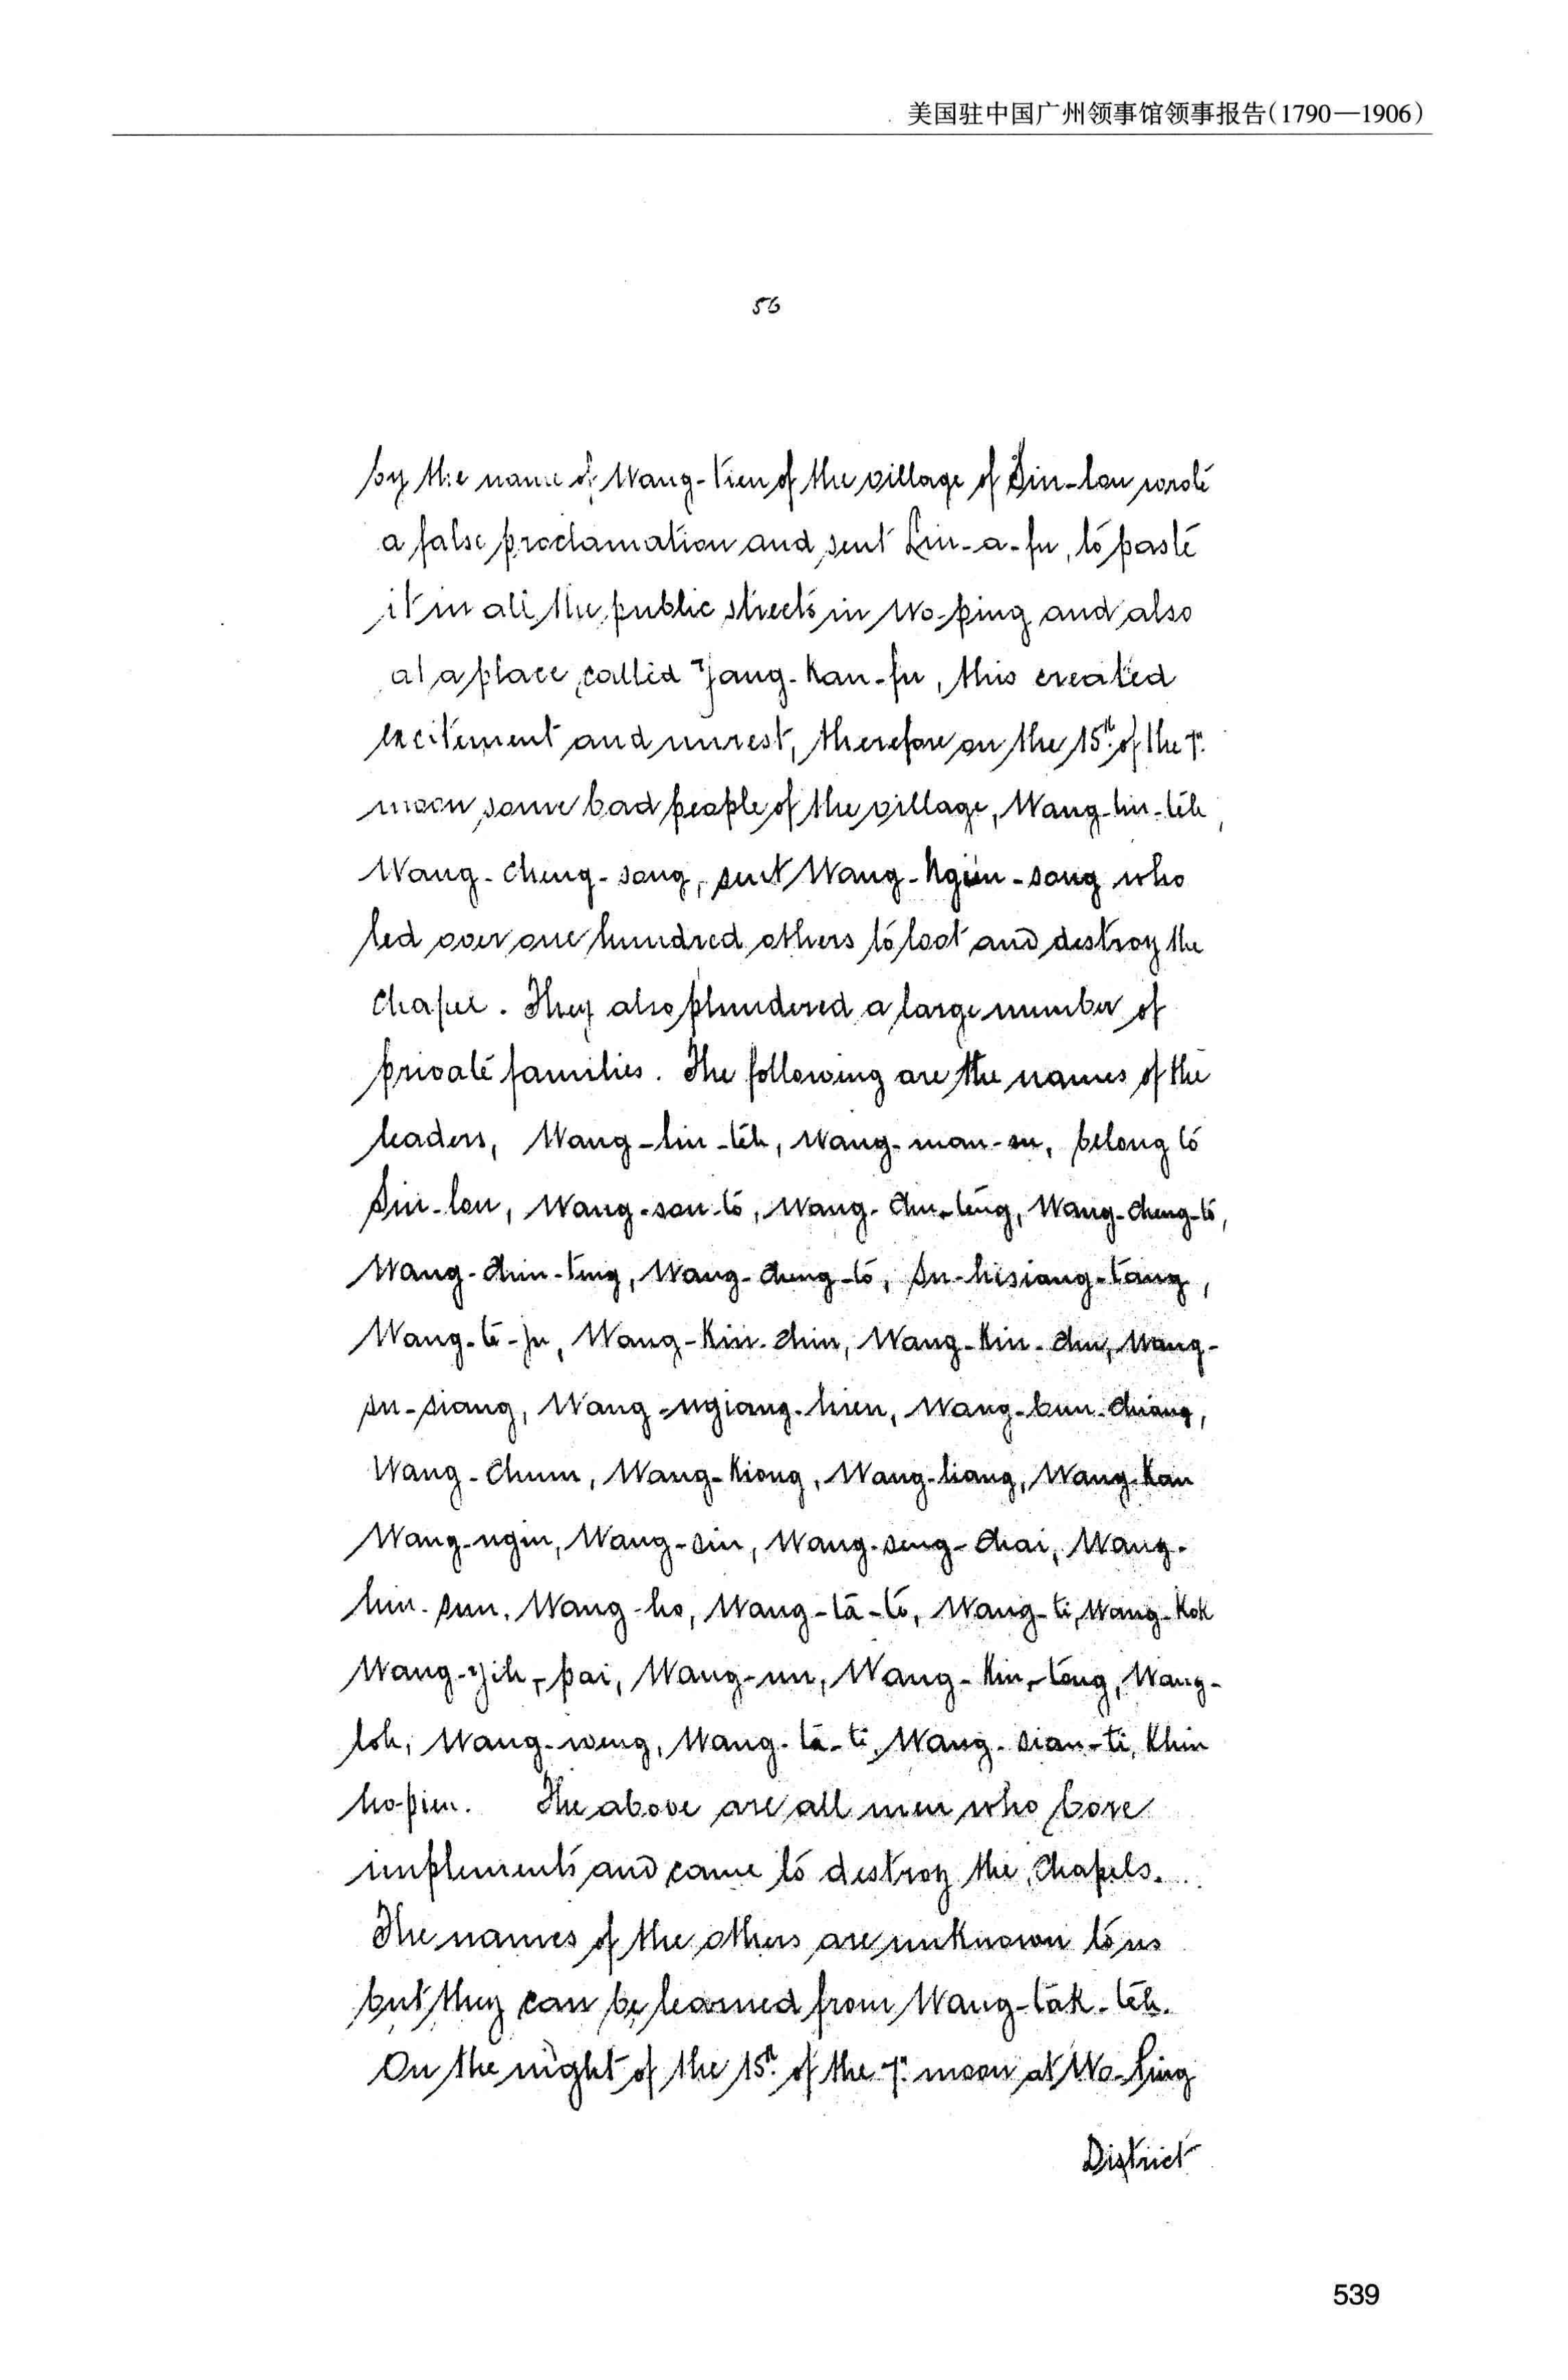 美国驻中国广州领事馆领事报告(1790—1906)
56
by the name of Wang-Tien of the village of Sin-lou wrote
a false proclamation and sent Lin-a-fu, to paste
it in all the public streets in Wo-ping and also
at a place called Yang-Kan-fu, this created
excitement and unrest, therefore on the 15th of the 7th
moon some bad people of the village, Wang-lin-teh,
Wang-cheng-song, sent Wang-Ngien-song who
led over one hundred others to loot and destroy the
chapel. They also plundered a large number of
private families. The following are the names of the
leaders, Wang-lin-teh, Wang-man-su, belong to
Sin-lou, Wang-sou-to, Wang-chu-teng, Wang-cheng-to,
Wang-chin-ting, Wang-cheng-to, Su-hisiang-tang,
Wang-te-fu, Wang-Kin-chin, Wang-Kin-chu, Wang-
su-siang, Wang-ngiang-hien, Wang-bun-chiang,
Wang-Chum, Wang-Kiong, Wang-liang, Wang-Kan
Wang-ngin, Wang-sin, Wang-seng-chai, Wang-
hin-sun, Wang-ho, Wang-ta-to, Wang-ti, Wang-Kok
Wang-yih-pai, Wang-un, Wang-Kin-tong, Wang-
loh, Wang-weng, Wang-ta-ti, Wang-sian-ti, Khin
ho-pien. The above are all men who bore
implements and came to destroy the chapels.
The names of the others are unknown to us
but they can be learned from Wang-tak-teh.
On the night of the 15th of the 7th moon at Wo-Ping
District
539